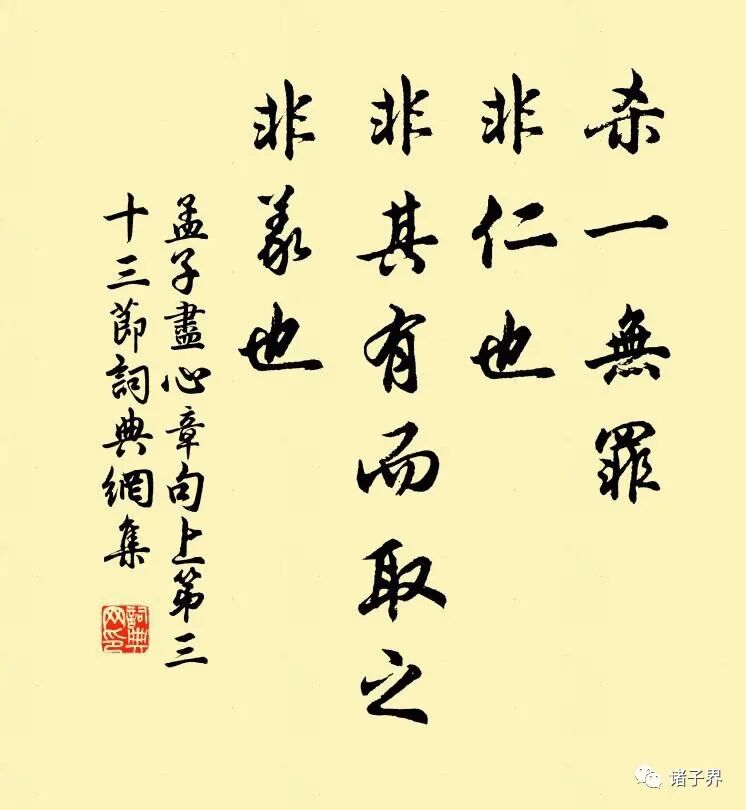 杀一無罪
非仁也
非其有而取之
非義也
孟子盡心章句上第三
十三節詞典網集
詞典
网印
诸子界